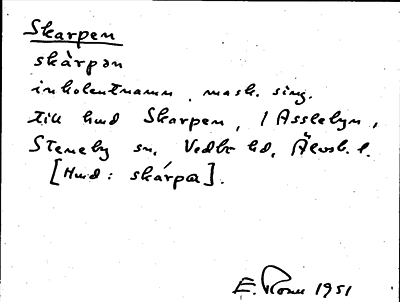 Skarpen
skàrpən
inkolentnamn, mask. sing.
till hmd Skarpen, i Asslebyn,
Steneby sn, Vedbo hd, Älvsb. l.
[Hmd: skárpa].
E. Ronn 1951